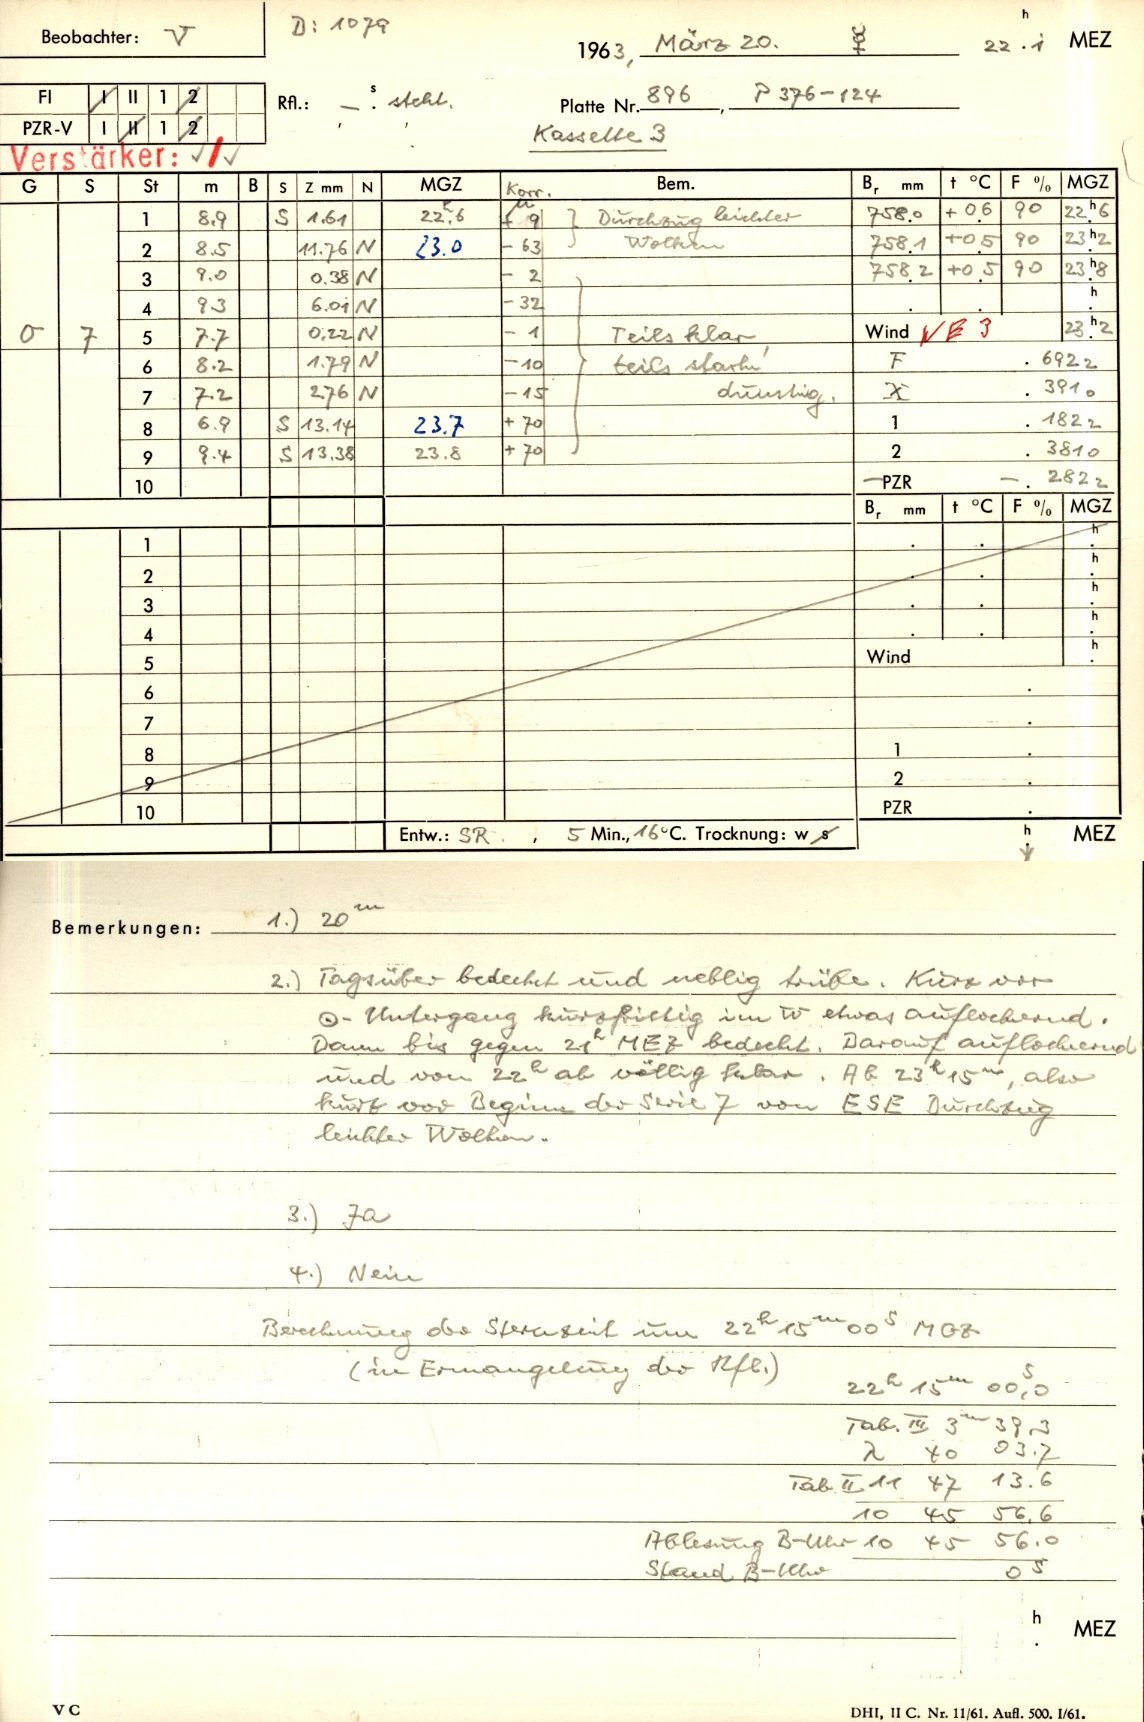 Beobachter: V
D: 1079
1963, März 20.
22.1 h MEZ
FI I II 1 2
PZR-V I II 1 2
Rfl.: — . s steht.
Platte Nr. 896, P 376-124
Kassette 3
Verstärker:
G S St m B S Z mm N MGZ Korr. Bem. Br mm t °C F % MGZ
1 8.9 S 1.61 22h.6 + 9 Durchzug leichter 758.0 +0.6 90 22h6
2 8.5 11.76 N 23.0 - 63 Wolken 758.1 +0.5 90 23h2
3 9.0 0.38 N - 2 758.2 +0.5 90 23h8
4 9.3 6.01 N - 32 h
0 7 5 7.7 0.22 N - 1 Teils klar, Wind E 3 23h2
6 8.2 1.79 N - 10 teils stark F . 6922
7 7.2 2.76 N - 15 dunstig. X . 3910
8 6.9 S 13.14 23.7 + 70 1 . 1822
9 9.4 S 13.38 23.8 + 70 2 . 3810
10 PZR — . 2822
Br mm t °C F % MGZ
1 h
2 h
3 h
4 h
5 Wind h
6
7
8 1
9 2
10 PZR
Entw.: SR , 5 Min., 16°C. Trocknung: w s h MEZ
Bemerkungen: 1.) 20 m
2.) Tagsüber bedeckt und neblig trübe. Kurz vor
⊙-Untergang kurzfristig im W etwas auflockernd.
Dann bis gegen 21h MEZ bedeckt. Darauf auflockernd
und von 22h ab völlig klar. Ab 23h15m, also
kurz vor Beginn der Serie 7 von ESE Durchzug
leichter Wolken.
3.) Ja
4.) Nein
Berechnung der Sternzeit um 22h 15m 00s MGZ
(in Ermangelung der Rfl.)
22h 15m 00,0s
Tab. III 3m 39,3
λ 40 03.7
Tab II 11 47 13.6
10 45 56,6
Ablesung B-Uhr 10 45 56.0
Stand B-Uhr 0s
h MEZ
V C
DHI, II C. Nr. 11/61. Aufl. 500. I/61.